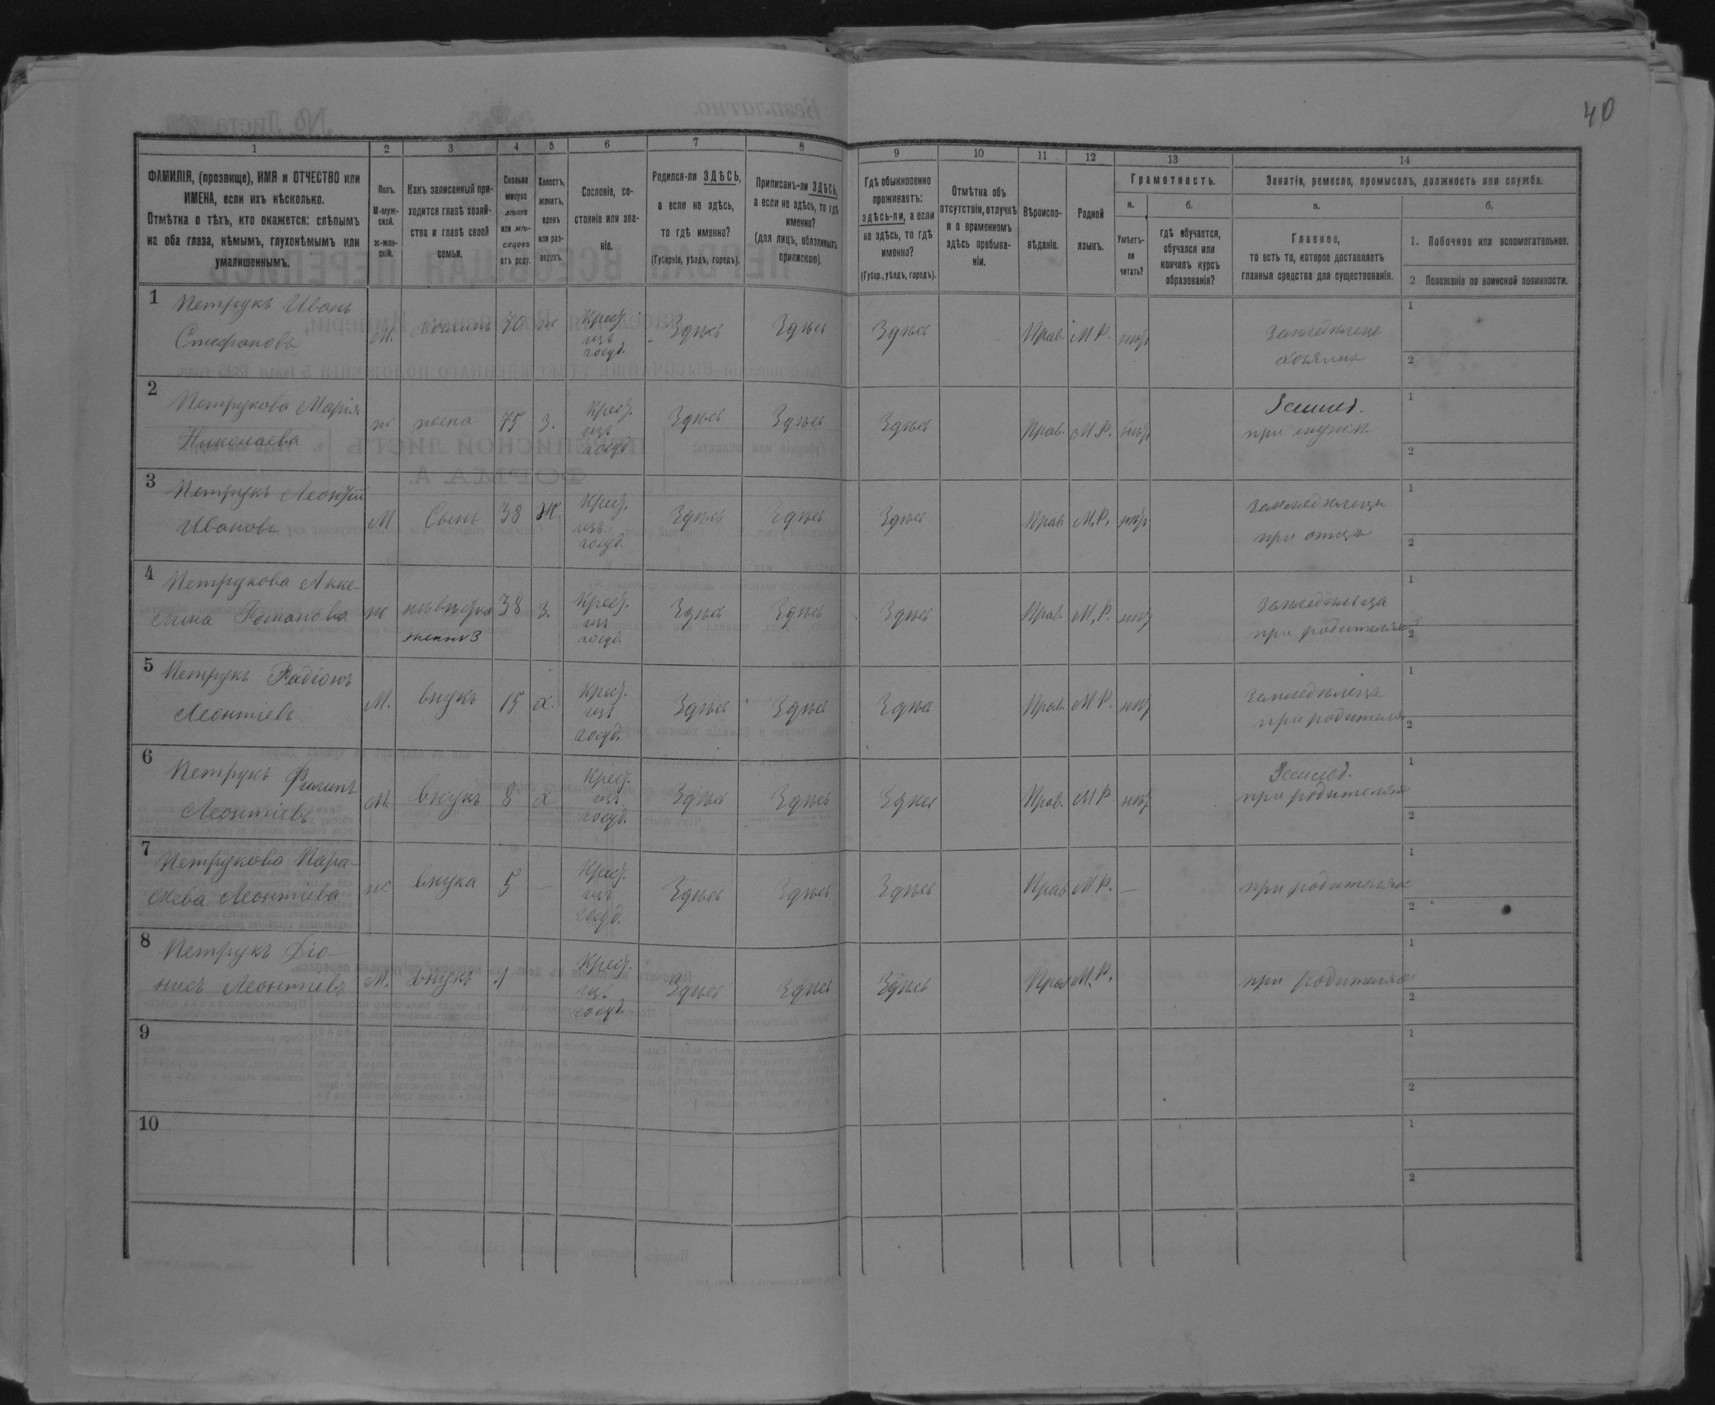 40
1
2
3
4
5
6
7
8
9
10
11
12
13
14
ФАМИЛІЯ, (прозвище), ИМЯ и ОТЧЕСТВО или
ИМЕНА, если ихъ нѣсколько.
Отмѣтка о тѣхъ, кто окажется: слѣпымъ
на оба глаза, нѣмымъ, глухонѣмымъ или
умалишеннымъ.
Полъ.
М-муж-
ской.
ж-жен-
скій.
Какъ записанный при-
ходится главѣ хозяй-
ства и главѣ своей
семьи.
Сколько
минуло
лѣтъ
или мѣ-
сяцевъ
отъ роду.
Холостъ,
женатъ,
вдовъ
или раз-
веденъ.
Сословіе, со-
стояніе или зва-
ніе.
Родился-ли ЗДѢСЬ,
а если не здѣсь,
то гдѣ именно?
(Губернія, уѣздъ, городъ).
Приписанъ-ли ЗДѢСЬ,
а если не здѣсь, то гдѣ
именно?
(для лицъ, обязанныхъ
припискою).
Гдѣ обыкновенно
проживаетъ:
здѣсь-ли, а если
не здѣсь, то гдѣ
именно?
(Губер., уѣздъ, городъ).
Отмѣтка объ
отсутствіи, отлучкѣ
и о временномъ
здѣсь пребыва-
ніи.
Вѣроиспо-
вѣданіе.
Родной
языкъ.
Грамотность.
а.
б.
Умѣетъ-
ли
читать?
гдѣ обучается,
обучался или
кончилъ курсъ
образованія?
Занятіе, ремесло, промыселъ, должность или служба.
а.
б.
Главное,
то есть то, которое доставляетъ
главныя средства для существованія.
1. Побочное или вспомогательное.
2 Положеніе по воинской повинности.
1 Петрукъ Иванъ
Стефановъ
М. 70 ж Крес. изъ госуд. Здѣсь Здѣсь Здѣсь Прав. М.Р.
1
2
2 Петрукова Марія
Николаева
ж жена 75 З. Крес. изъ госуд. Здѣсь Здѣсь Здѣсь Прав. М.Р. Землед. при мужѣ
1
2
3 Петрукъ Леонтій
Ивановъ
М Сынъ 38 Ж Крес. изъ госуд. Здѣсь Здѣсь Здѣсь Прав. М.Р. при отцѣ
1
2
4 Петрукова Акке-
лина Романова
ж невѣстка жена 3 38 З. Крес. изъ госуд. Здѣсь Здѣсь Здѣсь Прав. М.Р. при родителяхъ
1
2
5 Петрукъ Радіонъ
Леонтіевъ
М. внукъ 15 х. Крес. изъ госуд. Здѣсь Здѣсь Здѣсь Прав. М.Р. при родителяхъ
1
2
6 Петрукъ Филипъ
Леонтіевъ
М. внукъ 8 х Крес. изъ госуд. Здѣсь Здѣсь Здѣсь Прав. М.Р. Землед. при родителяхъ
1
2
7 Петрукова Пара-
скева Леонтіева
ж внука 5 — Крес. изъ госуд. Здѣсь Здѣсь Здѣсь Прав. М.Р. — при родителяхъ
1
2
8 Петрукъ Діо-
нисъ Леонтіевъ
М. внукъ 1 Крес. изъ госуд. Здѣсь Здѣсь Здѣсь Прав. М.Р. при родителяхъ
1
2
9
1
2
10
1
2